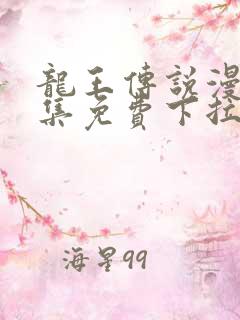 龍王傳說漫
集免費下拉
海星99